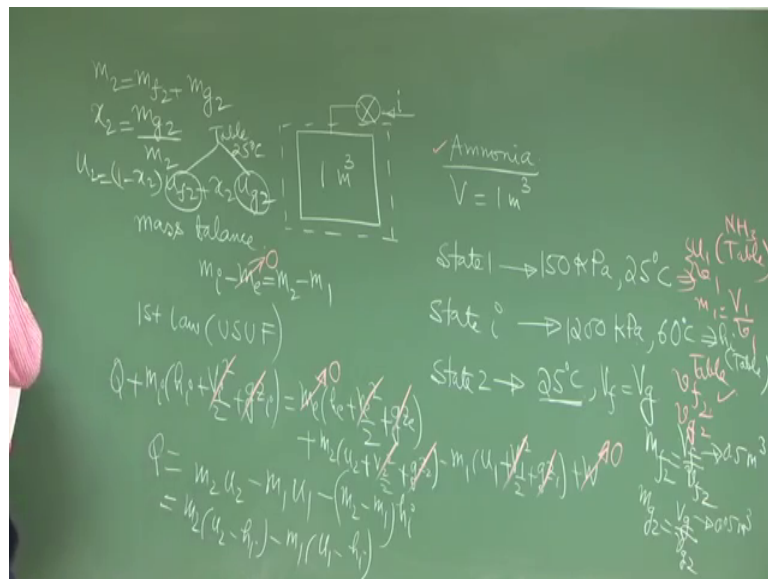 m₂ = m_f₂ + m_g₂
x₂ = m_g₂ / m₂
Table 25°C
u₂ = (1-x₂) u_f₂ + x₂ u_g₂
mass balance
m_i - m_e = m₂ - m₁
0
1st law (USUF)
Q + m_i (h_i + V_i²/2 + gz_i) = m_e (h_e + V_e²/2 + gz_e)
0
+ m₂ (u₂ + V₂²/2 + gz₂) - m₁ (u₁ + V₁²/2 + gz₁) + W
0
Q = m₂u₂ - m₁u₁ - (m₂ - m₁) h_i
= m₂(u₂ - h_i) - m₁(u₁ - h_i)
i
1 m³
✓ Ammonia
V = 1 m³
State 1 → 150 kPa, 25°C ⇒ u₁ (NH₃ Table)
v₁
m₁ = V₁/v₁
State i → 1200 kPa, 60°C ⇒ h_i (Table)
State 2 → 25°C, V_f = V_g
Table
v_f₂ ✓
v_g₂
m_f₂ = V_f/v_f₂ → 0.5 m³
m_g₂ = V_g/v_g₂ → 0.5 m³